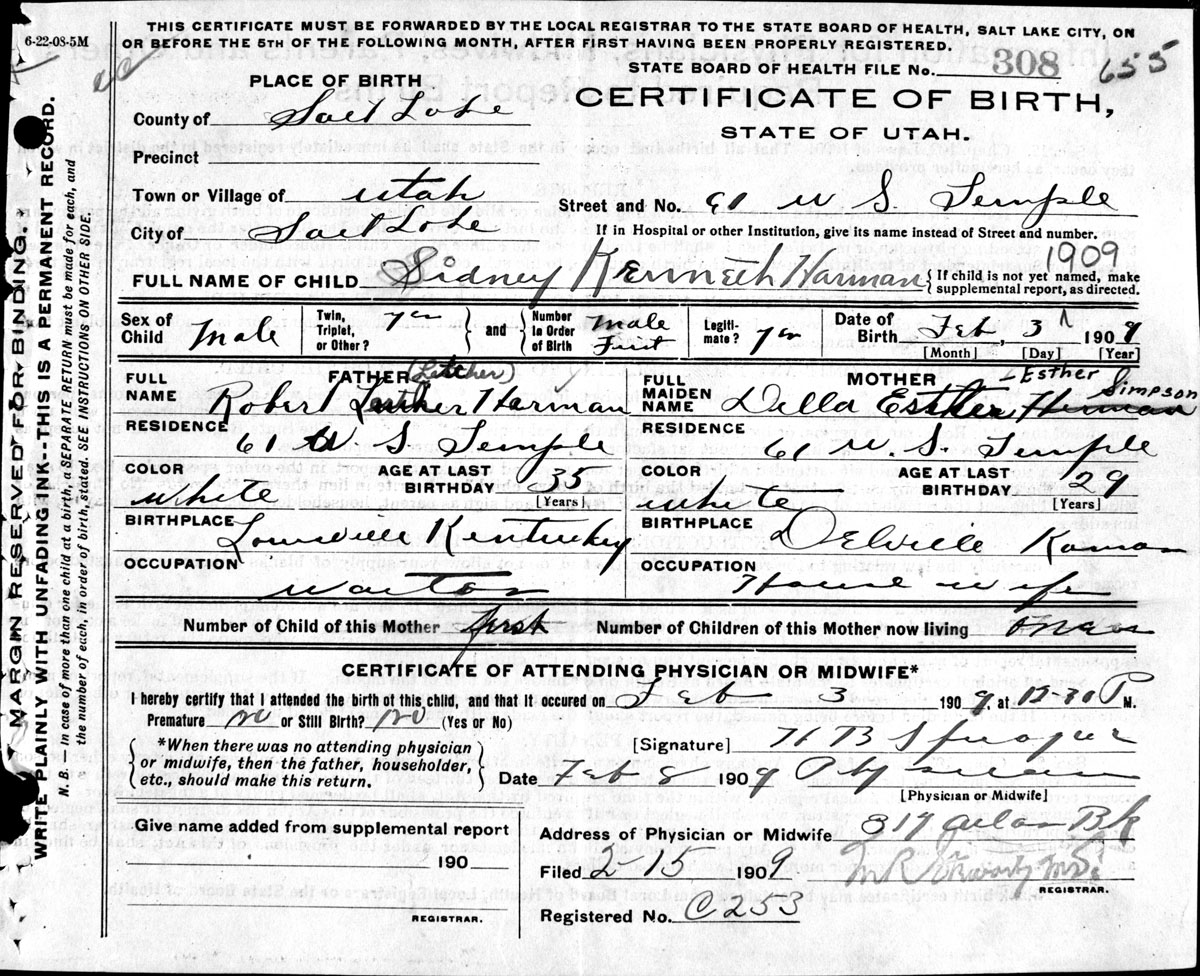 THIS CERTIFICATE MUST BE FORWARDED BY THE LOCAL REGISTRAR TO THE STATE BOARD OF HEALTH, SALT LAKE CITY, ON
OR BEFORE THE 5TH OF THE FOLLOWING MONTH, AFTER FIRST HAVING BEEN PROPERLY REGISTERED.
6-22-08-5M
STATE BOARD OF HEALTH FILE No. 308 655
PLACE OF BIRTH
CERTIFICATE OF BIRTH,
STATE OF UTAH.
County of Salt Lake
Precinct
Town or Village of Utah
Street and No. 61 W S. Temple
City of Salt Lake
If in Hospital or other Institution, give its name instead of Street and number.
1909
FULL NAME OF CHILD Sidney Kenneth Harman { If child is not yet named, make supplemental report, as directed.
Sex of Child Male
Twin, Triplet, or Other?
and
Number in Order of Birth Male First
Legitimate? Yes
Date of Birth Feb 3 1909
[Month] [Day] [Year]
FATHER (Letcher)
FULL NAME Robert Luther Harman
MOTHER
FULL MAIDEN NAME Della Esther Harman
Esther Simpson
RESIDENCE 61 W S Temple
RESIDENCE 61 W. S. Temple
COLOR White
AGE AT LAST BIRTHDAY 35 [Years]
COLOR White
AGE AT LAST BIRTHDAY 29 [Years]
BIRTHPLACE Louisville Kentuckey
BIRTHPLACE Delville
OCCUPATION
OCCUPATION House wife
Number of Child of this Mother first
Number of Children of this Mother now living
CERTIFICATE OF ATTENDING PHYSICIAN OR MIDWIFE*
I hereby certify that I attended the birth of this child, and that it occured on Feb 3 1909. at 12-30 P M.
Premature no or Still Birth? no (Yes or No)
*When there was no attending physician or midwife, then the father, householder, etc., should make this return.
[Signature] H B
Date Feb 8 1909 Physician
[Physician or Midwife]
Give name added from supplemental report
190
REGISTRAR.
Address of Physician or Midwife
Filed 2-15 1909
REGISTRAR.
Registered No. C253
MARGIN RESERVED FOR BINDING.
WRITE PLAINLY WITH UNFADING INK--THIS IS A PERMANENT RECORD.
N. B.—In case of more than one child at a birth, a SEPARATE RETURN must be made for each, and
the number of each, in order of birth, stated. SEE INSTRUCTIONS ON OTHER SIDE.